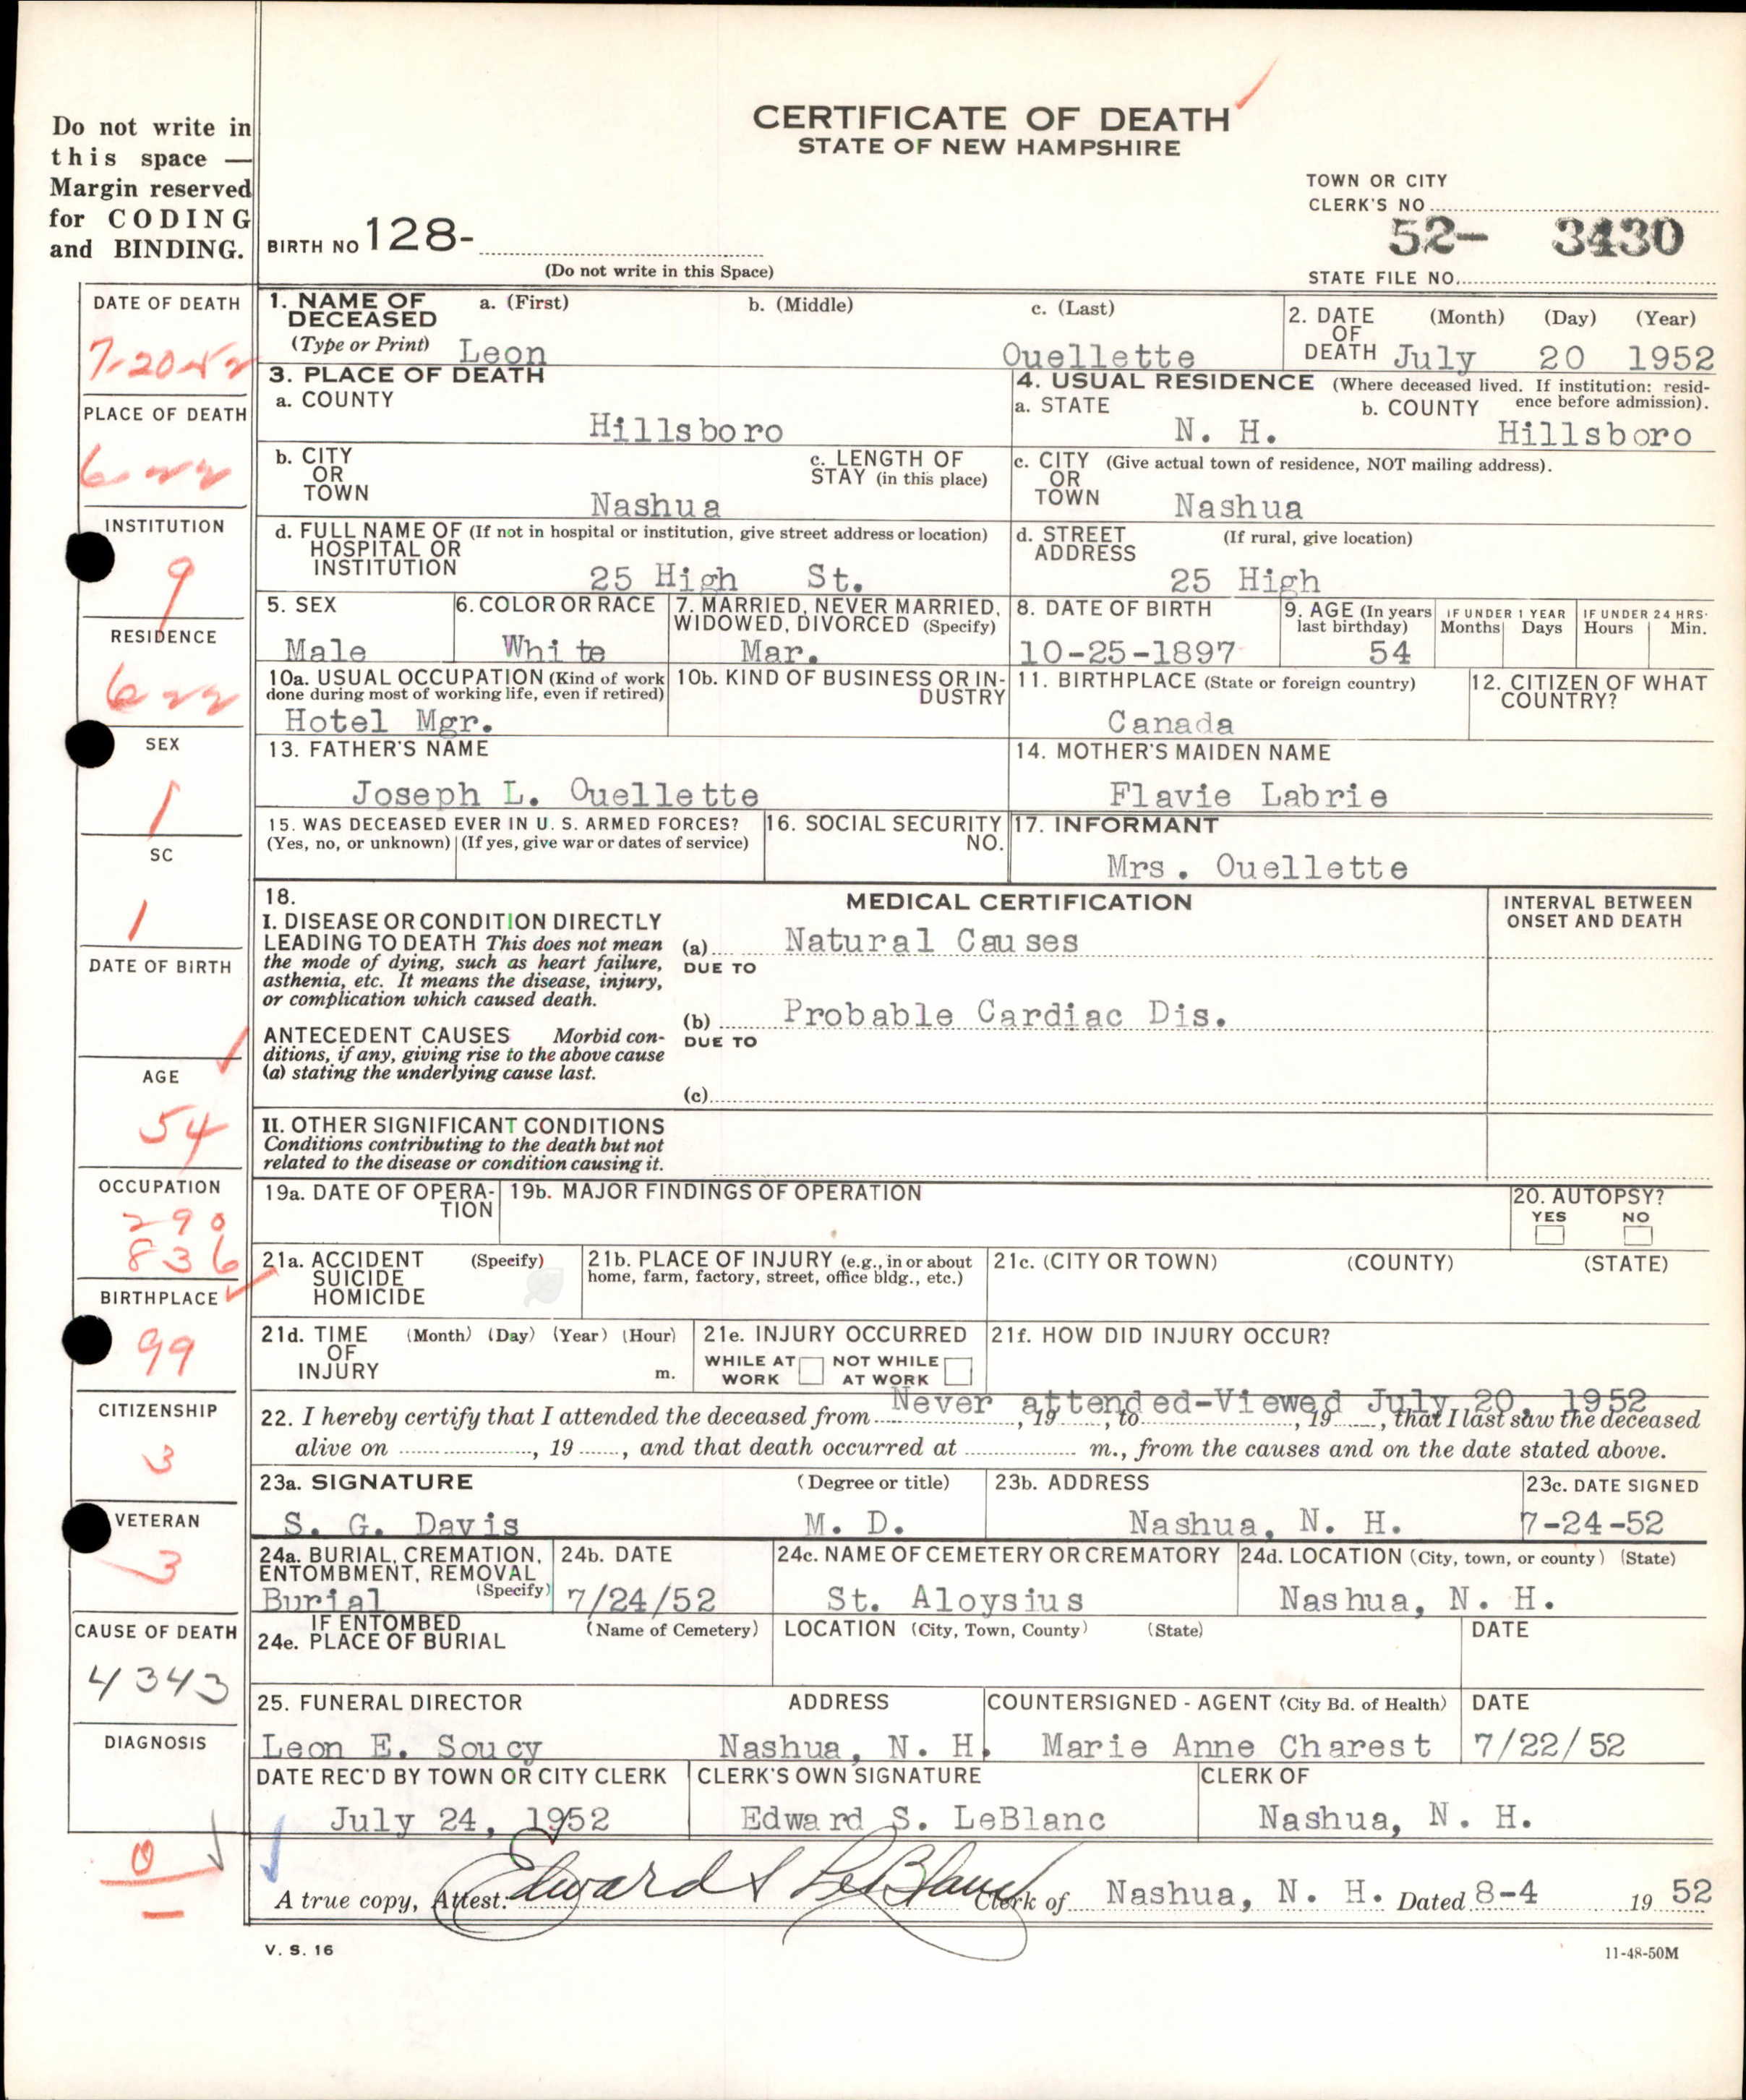 CERTIFICATE OF DEATH
STATE OF NEW HAMPSHIRE
Do not write in
this space —
Margin reserved
for CODING
and BINDING.
TOWN OR CITY
CLERK'S NO.
BIRTH NO 128-
(Do not write in this Space)
52- 3430
STATE FILE NO.
DATE OF DEATH
7-20-52
PLACE OF DEATH
622
INSTITUTION
9
RESIDENCE
622
SEX
1
SC
1
DATE OF BIRTH
AGE
54
OCCUPATION
290
836
BIRTHPLACE
99
CITIZENSHIP
3
VETERAN
3
CAUSE OF DEATH
4343
DIAGNOSIS
0
1. NAME OF DECEASED (Type or Print) a. (First) b. (Middle) c. (Last)
Leon Ouellette
2. DATE OF DEATH (Month) (Day) (Year)
July 20 1952
3. PLACE OF DEATH
a. COUNTY
Hillsboro
4. USUAL RESIDENCE (Where deceased lived. If institution: resid-
ence before admission).
a. STATE b. COUNTY
N. H. Hillsboro
b. CITY OR TOWN
Nashua
c. LENGTH OF STAY (in this place)
c. CITY OR TOWN (Give actual town of residence, NOT mailing address).
Nashua
d. FULL NAME OF HOSPITAL OR INSTITUTION (If not in hospital or institution, give street address or location)
25 High St.
d. STREET ADDRESS (If rural, give location)
25 High
5. SEX
Male
6. COLOR OR RACE
White
7. MARRIED, NEVER MARRIED,
WIDOWED, DIVORCED (Specify)
Mar.
8. DATE OF BIRTH
10-25-1897
9. AGE (In years
last birthday)
54
IF UNDER 1 YEAR
Months Days
IF UNDER 24 HRS.
Hours Min.
10a. USUAL OCCUPATION (Kind of work
done during most of working life, even if retired)
Hotel Mgr.
10b. KIND OF BUSINESS OR IN-
DUSTRY
11. BIRTHPLACE (State or foreign country)
Canada
12. CITIZEN OF WHAT
COUNTRY?
13. FATHER'S NAME
Joseph L. Ouellette
14. MOTHER'S MAIDEN NAME
Flavie Labrie
15. WAS DECEASED EVER IN U. S. ARMED FORCES?
(Yes, no, or unknown) (If yes, give war or dates of service)
16. SOCIAL SECURITY
NO.
17. INFORMANT
Mrs. Ouellette
18.
MEDICAL CERTIFICATION
INTERVAL BETWEEN
ONSET AND DEATH
I. DISEASE OR CONDITION DIRECTLY
LEADING TO DEATH This does not mean
the mode of dying, such as heart failure,
asthenia, etc. It means the disease, injury,
or complication which caused death.
(a) Natural Causes
DUE TO
(b) Probable Cardiac Dis.
DUE TO
(c)
ANTECEDENT CAUSES Morbid con-
ditions, if any, giving rise to the above cause
(a) stating the underlying cause last.
II. OTHER SIGNIFICANT CONDITIONS
Conditions contributing to the death but not
related to the disease or condition causing it.
19a. DATE OF OPERA-
TION
19b. MAJOR FINDINGS OF OPERATION
20. AUTOPSY?
YES NO
21a. ACCIDENT (Specify)
SUICIDE
HOMICIDE
21b. PLACE OF INJURY (e.g., in or about
home, farm, factory, street, office bldg., etc.)
21c. (CITY OR TOWN) (COUNTY) (STATE)
21d. TIME OF INJURY (Month) (Day) (Year) (Hour)
m.
21e. INJURY OCCURRED
WHILE AT WORK NOT WHILE AT WORK
21f. HOW DID INJURY OCCUR?
Never attended-Viewed July 20, 1952
22. I hereby certify that I attended the deceased from , 19 , to , 19 , that I last saw the deceased
alive on , 19 , and that death occurred at m., from the causes and on the date stated above.
23a. SIGNATURE (Degree or title)
S. G. Davis M. D.
23b. ADDRESS
Nashua, N. H.
23c. DATE SIGNED
7-24-52
24a. BURIAL, CREMATION,
ENTOMBMENT, REMOVAL
(Specify)
Burial
24b. DATE
7/24/52
24c. NAME OF CEMETERY OR CREMATORY
St. Aloysius
24d. LOCATION (City, town, or county) (State)
Nashua, N. H.
IF ENTOMBED
24e. PLACE OF BURIAL (Name of Cemetery)
LOCATION (City, Town, County) (State)
DATE
25. FUNERAL DIRECTOR ADDRESS
Leon E. Soucy Nashua, N. H.
COUNTERSIGNED - AGENT (City Bd. of Health)
Marie Anne Charest
DATE
7/22/52
DATE REC'D BY TOWN OR CITY CLERK
July 24, 1952
CLERK'S OWN SIGNATURE
Edward S. LeBlanc
CLERK OF
Nashua, N. H.
A true copy, Attest: Edward S LeBlanc Clerk of Nashua, N. H. Dated 8-4 19 52
V. S. 16
11-48-50M